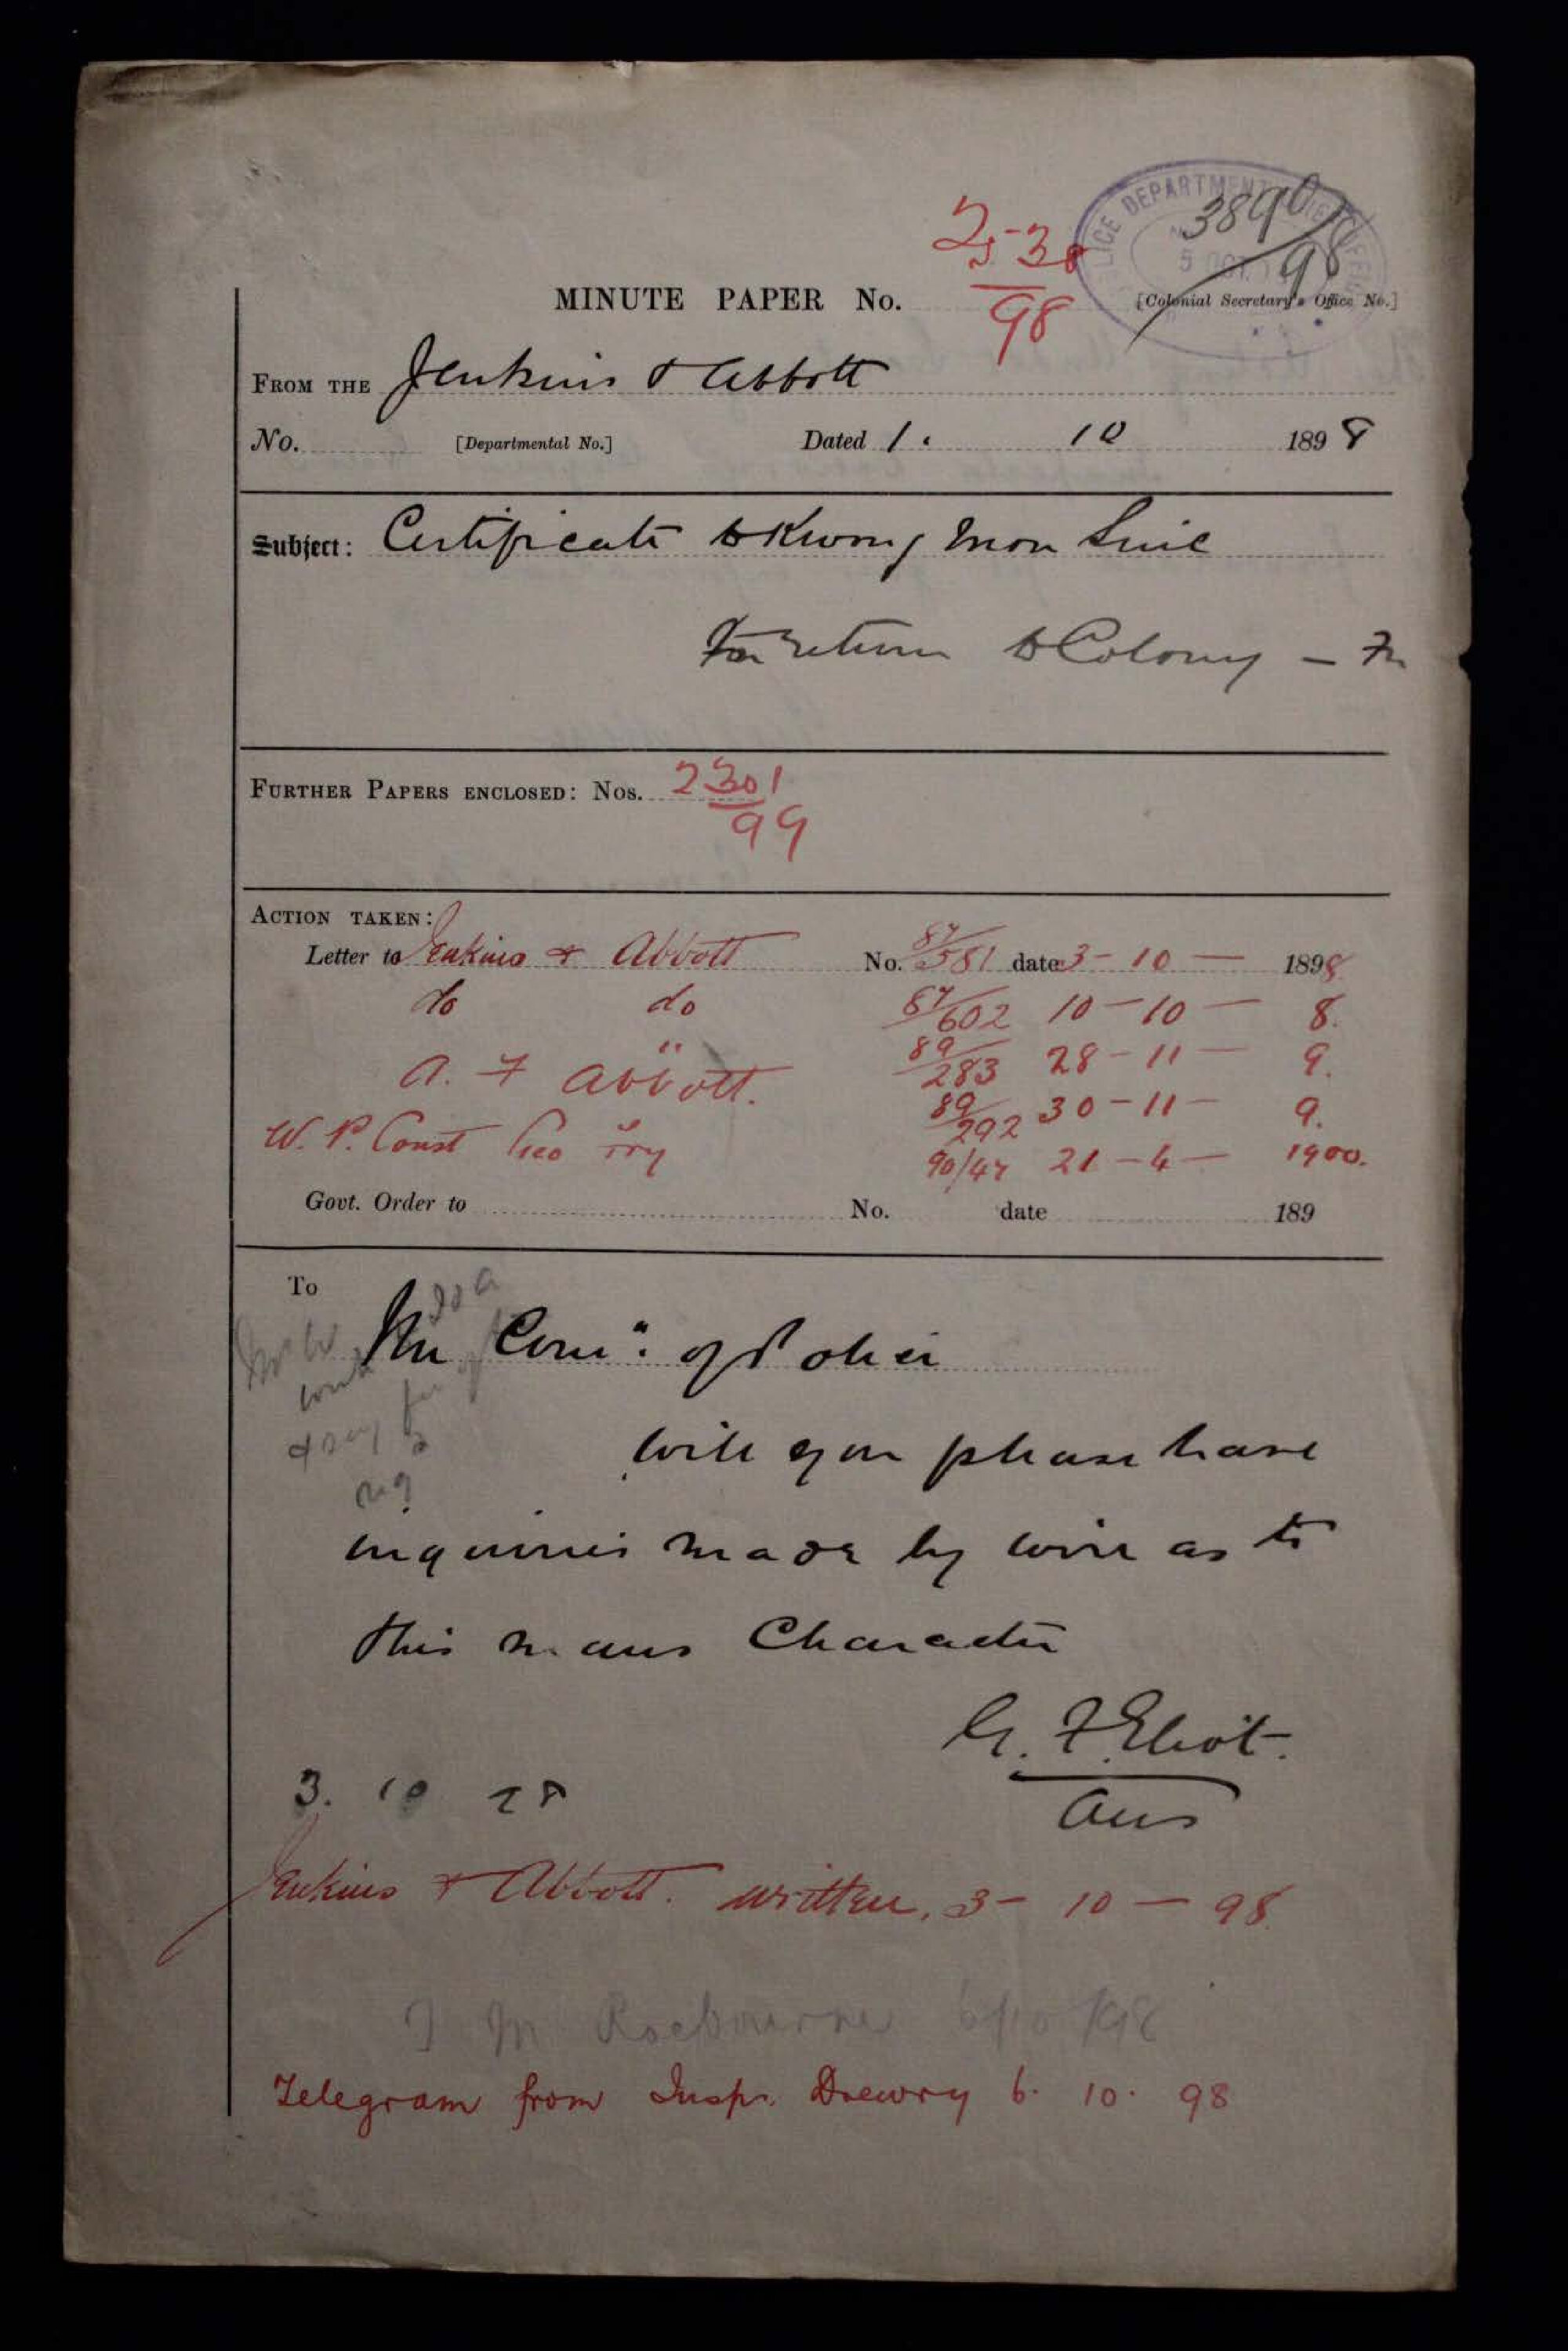 POLICE DEPARTMENT
5 OCT.
3890/98
2530/98
MINUTE PAPER No.
[Colonial Secretary's Office No.]
FROM THE Jenkins & Abbott
No. [Departmental No.] Dated 1. 10 1898
Subject: Certificate to Kwong Mon
for return to Colony –
FURTHER PAPERS ENCLOSED: Nos. 2301/99
ACTION TAKEN:
Letter to Jenkins & Abbott No. 87/581 date 3 - 10 - 1898
do do 87/602 10 - 10 - 8.
A. F Abbott. 89/283 28 - 11 - 9.
" 89/292 30 - 11 - 9.
W. P. Const Geo 90/47 21 - 4 - 1900.
Govt. Order to No. date 189
To
The Comr. of Police
Will you please have
inquiries made by wire as to
this mans Character
G. F. Eliot.
aus
3. 10 98
Jenkins & Abbott. written. 3 - 10 - 98.
Roebourne 6/10/98
Telegram from Inspr. Drewry 6. 10. 98